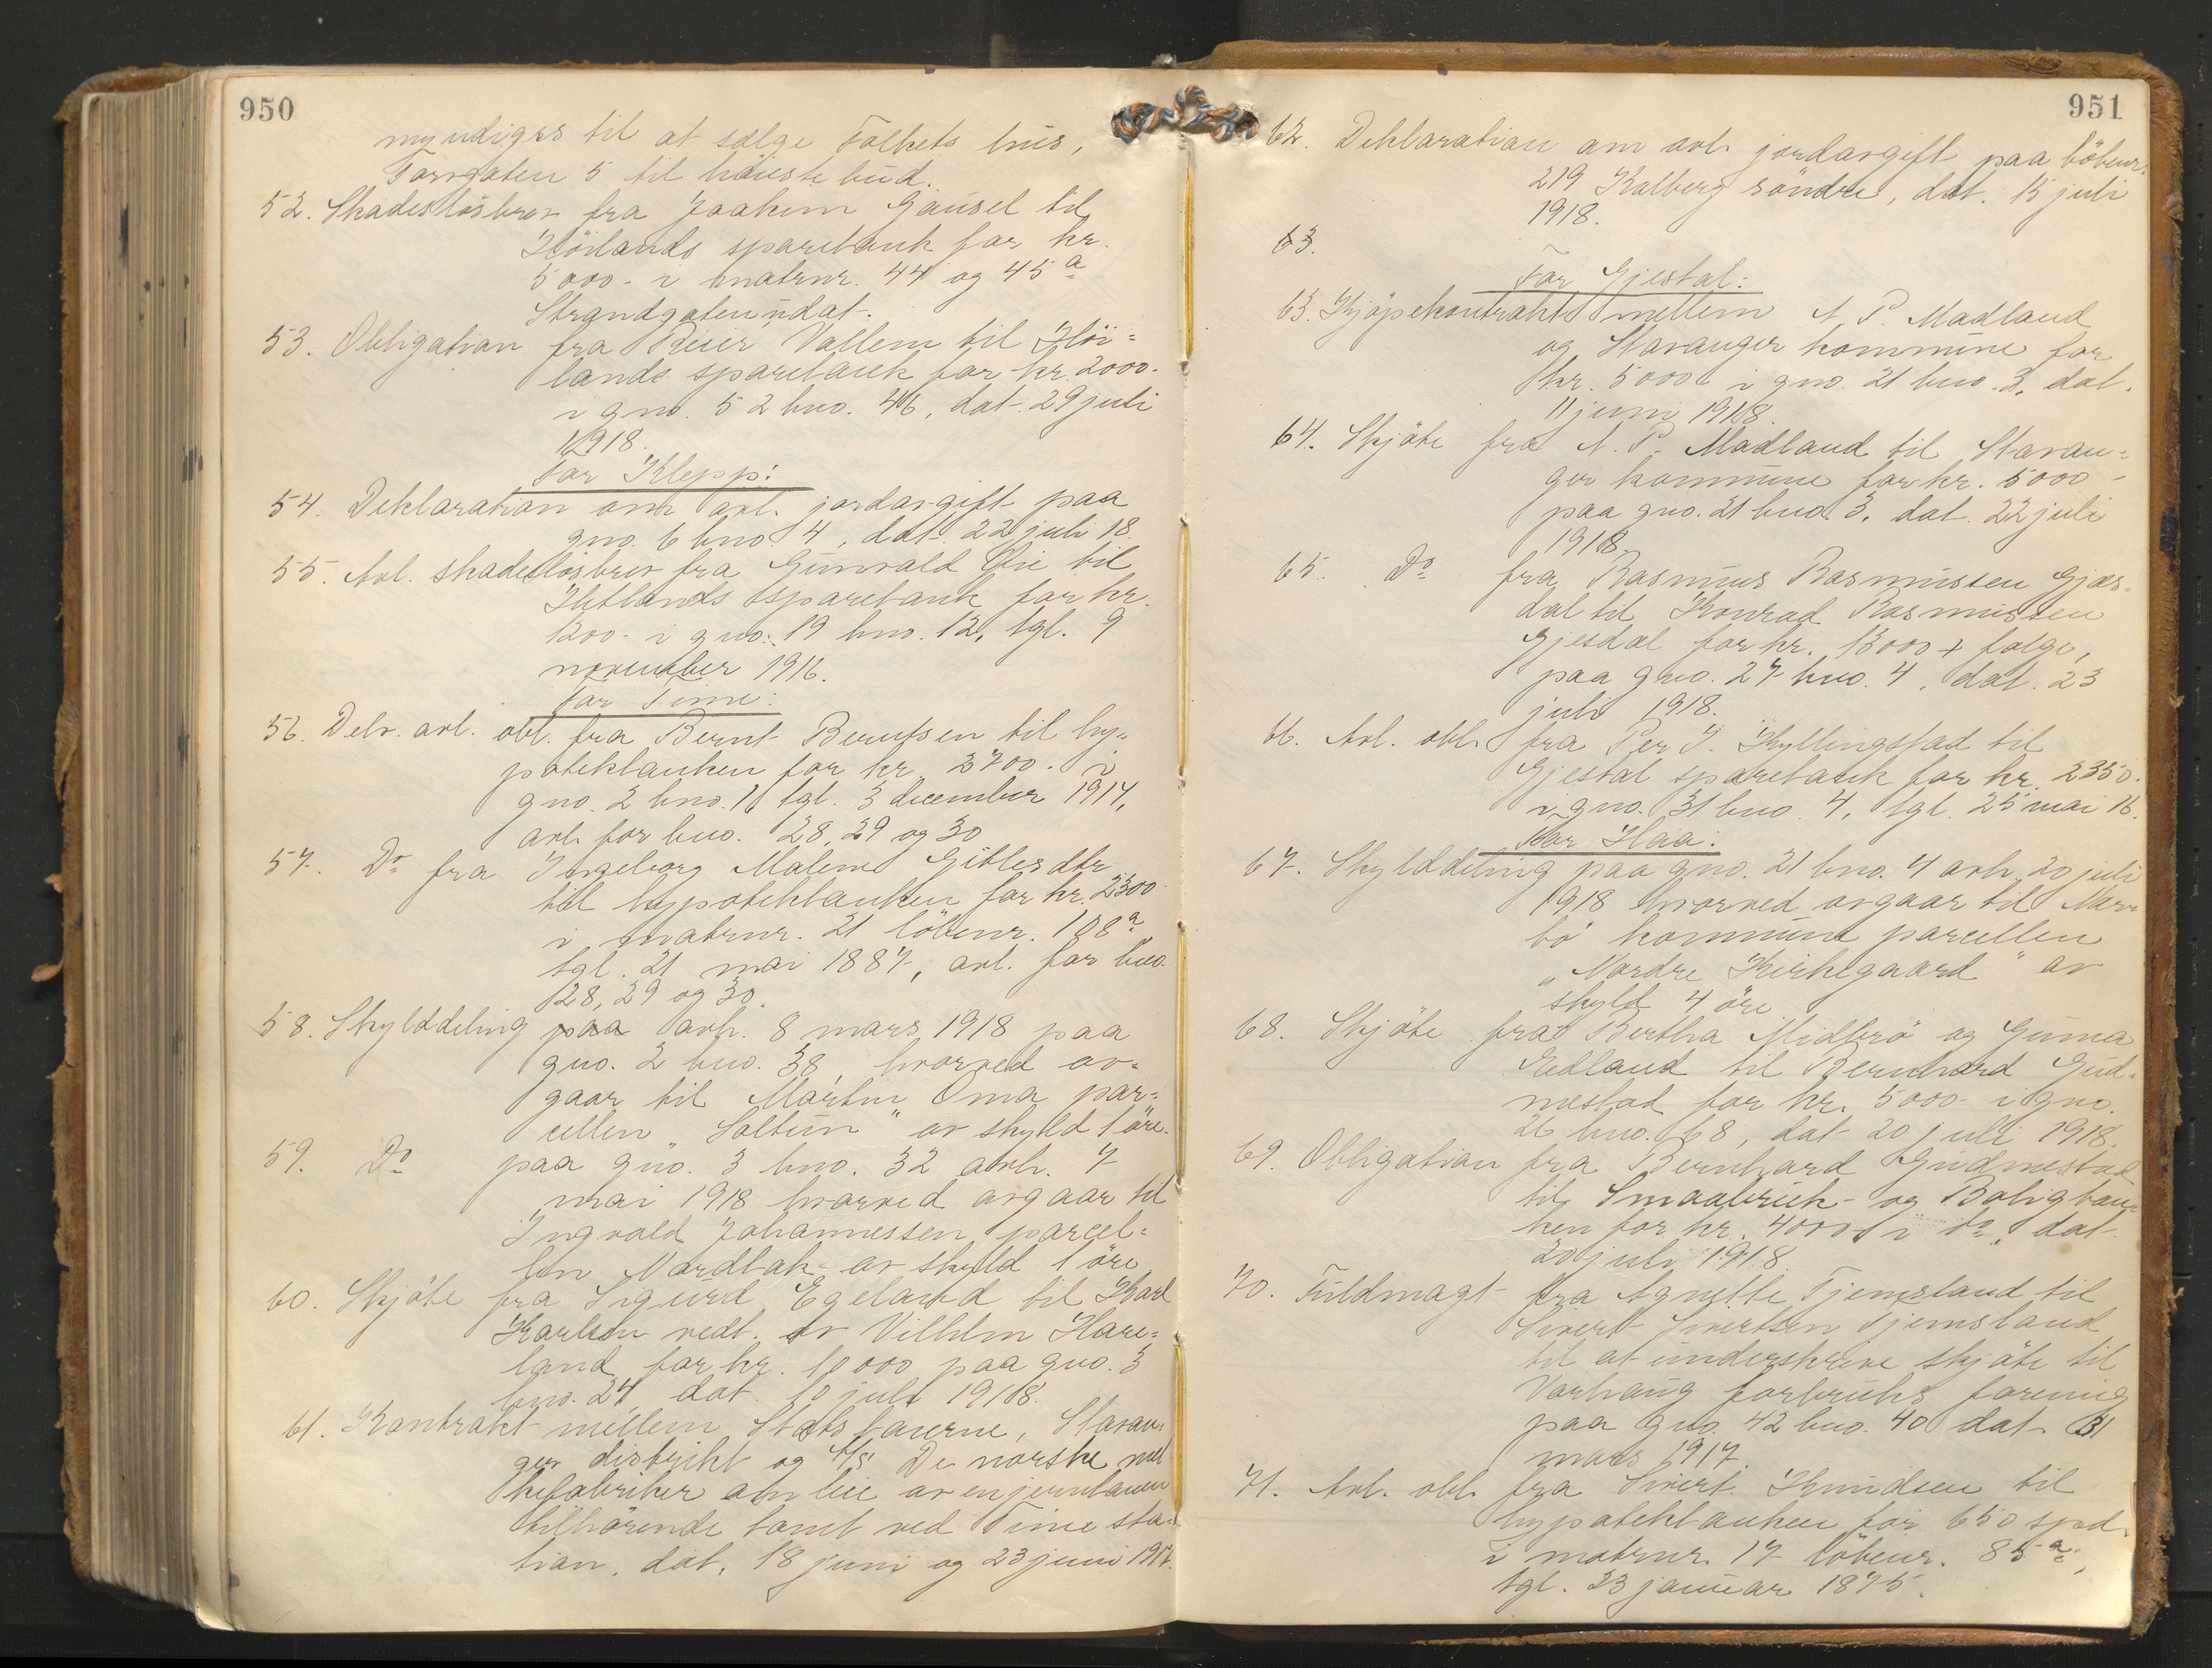 950
myndiges til at sælge Folkets hus,
Torvgaten 5 til höieste bud.
52. Skadeslösbrev fra Joakim Gausel til
Höilands sparebank for kr.
5000.- i matrnr. 44 og 45a
Strandgaten udat.
53. Obligation fra Reier Vallem til Höi=
lands sparebank for kr. 2000.-
i gno. 52 bno. 46, dat. 29 juli
1918.
For Klepp:
54. Deklaration om avl. jordavgift paa
gno. 6 bno. 4, dat. 22 juli 18.
55. Avl. skadeslösbrev fra Gunvald Lie til
Hetlands sparebank for kr.
1200.- i gno. 19 bno. 12, tgl. 9
november 1916.
For Time:
56. Delv. avl. obl. fra Bernt Berntsen til hy=
potekbanken for kr. 2700.- i
gno. 2 bno. 1, tgl. 3 december 1914,
avl. for bno. 28, 29 og 30
57. Do fra Ingeborg Malene Gitlesdtr
til hypotekbanken for kr. 2300.-
i matrnr. 21 löbenr. 108a
tgl. 21 mai 1887, avl. for bno.
28, 29 og 30.
58. Skylddeling paa avh. 8 mars 1918 paa
gno. 2 bno. 38, hvorved av=
gaar til Martin Oma par=
cellen „Soltun“ av skyld 1 öre.
59. Do paa gno. 3 bno. 32 avh. 7
mai 1918 hvorved avgaar til
Ingvald Johannessen parcel=
len Nordbak av skyld 1 öre
60. Skjöte fra Sigurd Egeland til Karl
Karlsen vedt. av Vilhelm Hare=
land for kr. 10000 paa gno. 3
bno. 24 dat. 10 juli 1918.
61. Kontrakt mellem Statsbanerne, Stavan=
ger distrikt og A/S De norske mel=
kefabriker om leie av en jernbanen
tilhörende tomt ved Time sta=
tion, dat. 18 juni og 23 juni 1917.
951
62. Deklaration om avl. jordavgift paa löbenr.
219 Kalberg söndre, dat. 15 juli
1918.
63.
For Gjestal:
63. Kjöpekontrakt mellem N. P. Madland
og Stavanger kommune for
kr. 5000 i gno. 21 bno. 3, dat.
11 juni 1918.
64. Skjöte fra N. P. Madland til Stavan=
ger kommune for kr. 5000.-
paa gno. 21 bno. 3, dat. 22 juli
1918.
65. Do fra Rasmus Rasmussen Gjes=
dal til Konrad Rasmussen
Gjesdal for kr. 13000 + følge,
paa gno. 27 bno. 4, dat. 23
juli 1918.
66. Avl. obl. fra Per J. Kyllingstad til
Gjestal sparebank for kr. 2350.-
i gno. 31 bno. 4, tgl. 25 mai 16.
For Haa:
67. Skylddeling paa gno. 21 bno. 4 avh. 20 juli
1918 hvorved avgaar til Nær=
bö kommune parcellen
„Nordre Kirkegaard“ av
skyld 4 öre
68. Skjöte fra Bertha Midbrö og Gunna
Edland til Bernhard Gud=
mestad for kr. 5000 i gno.
26 bno. 68, dat 20 juli 1918.
69. Obligation fra Bernhard Gudmestad
til Smaabruk- og Boligban=
ken for kr. 4000 i do, dat.
20 juli 1918.
70. Fuldmagt fra Agnette Tjemsland til
Sivert Sivertsen Tjemsland
til at underskrive skjöte til
Varhaug forbruks forening
paa gno. 42 bno. 40 dat. 31
mars 1917.
71. Avl. obl. fra Sivert Knudsen til
hypotekbanken for 650 spd.
i matrnr. 17 löbenr. 85a,
tgl. 23 januar 1875.